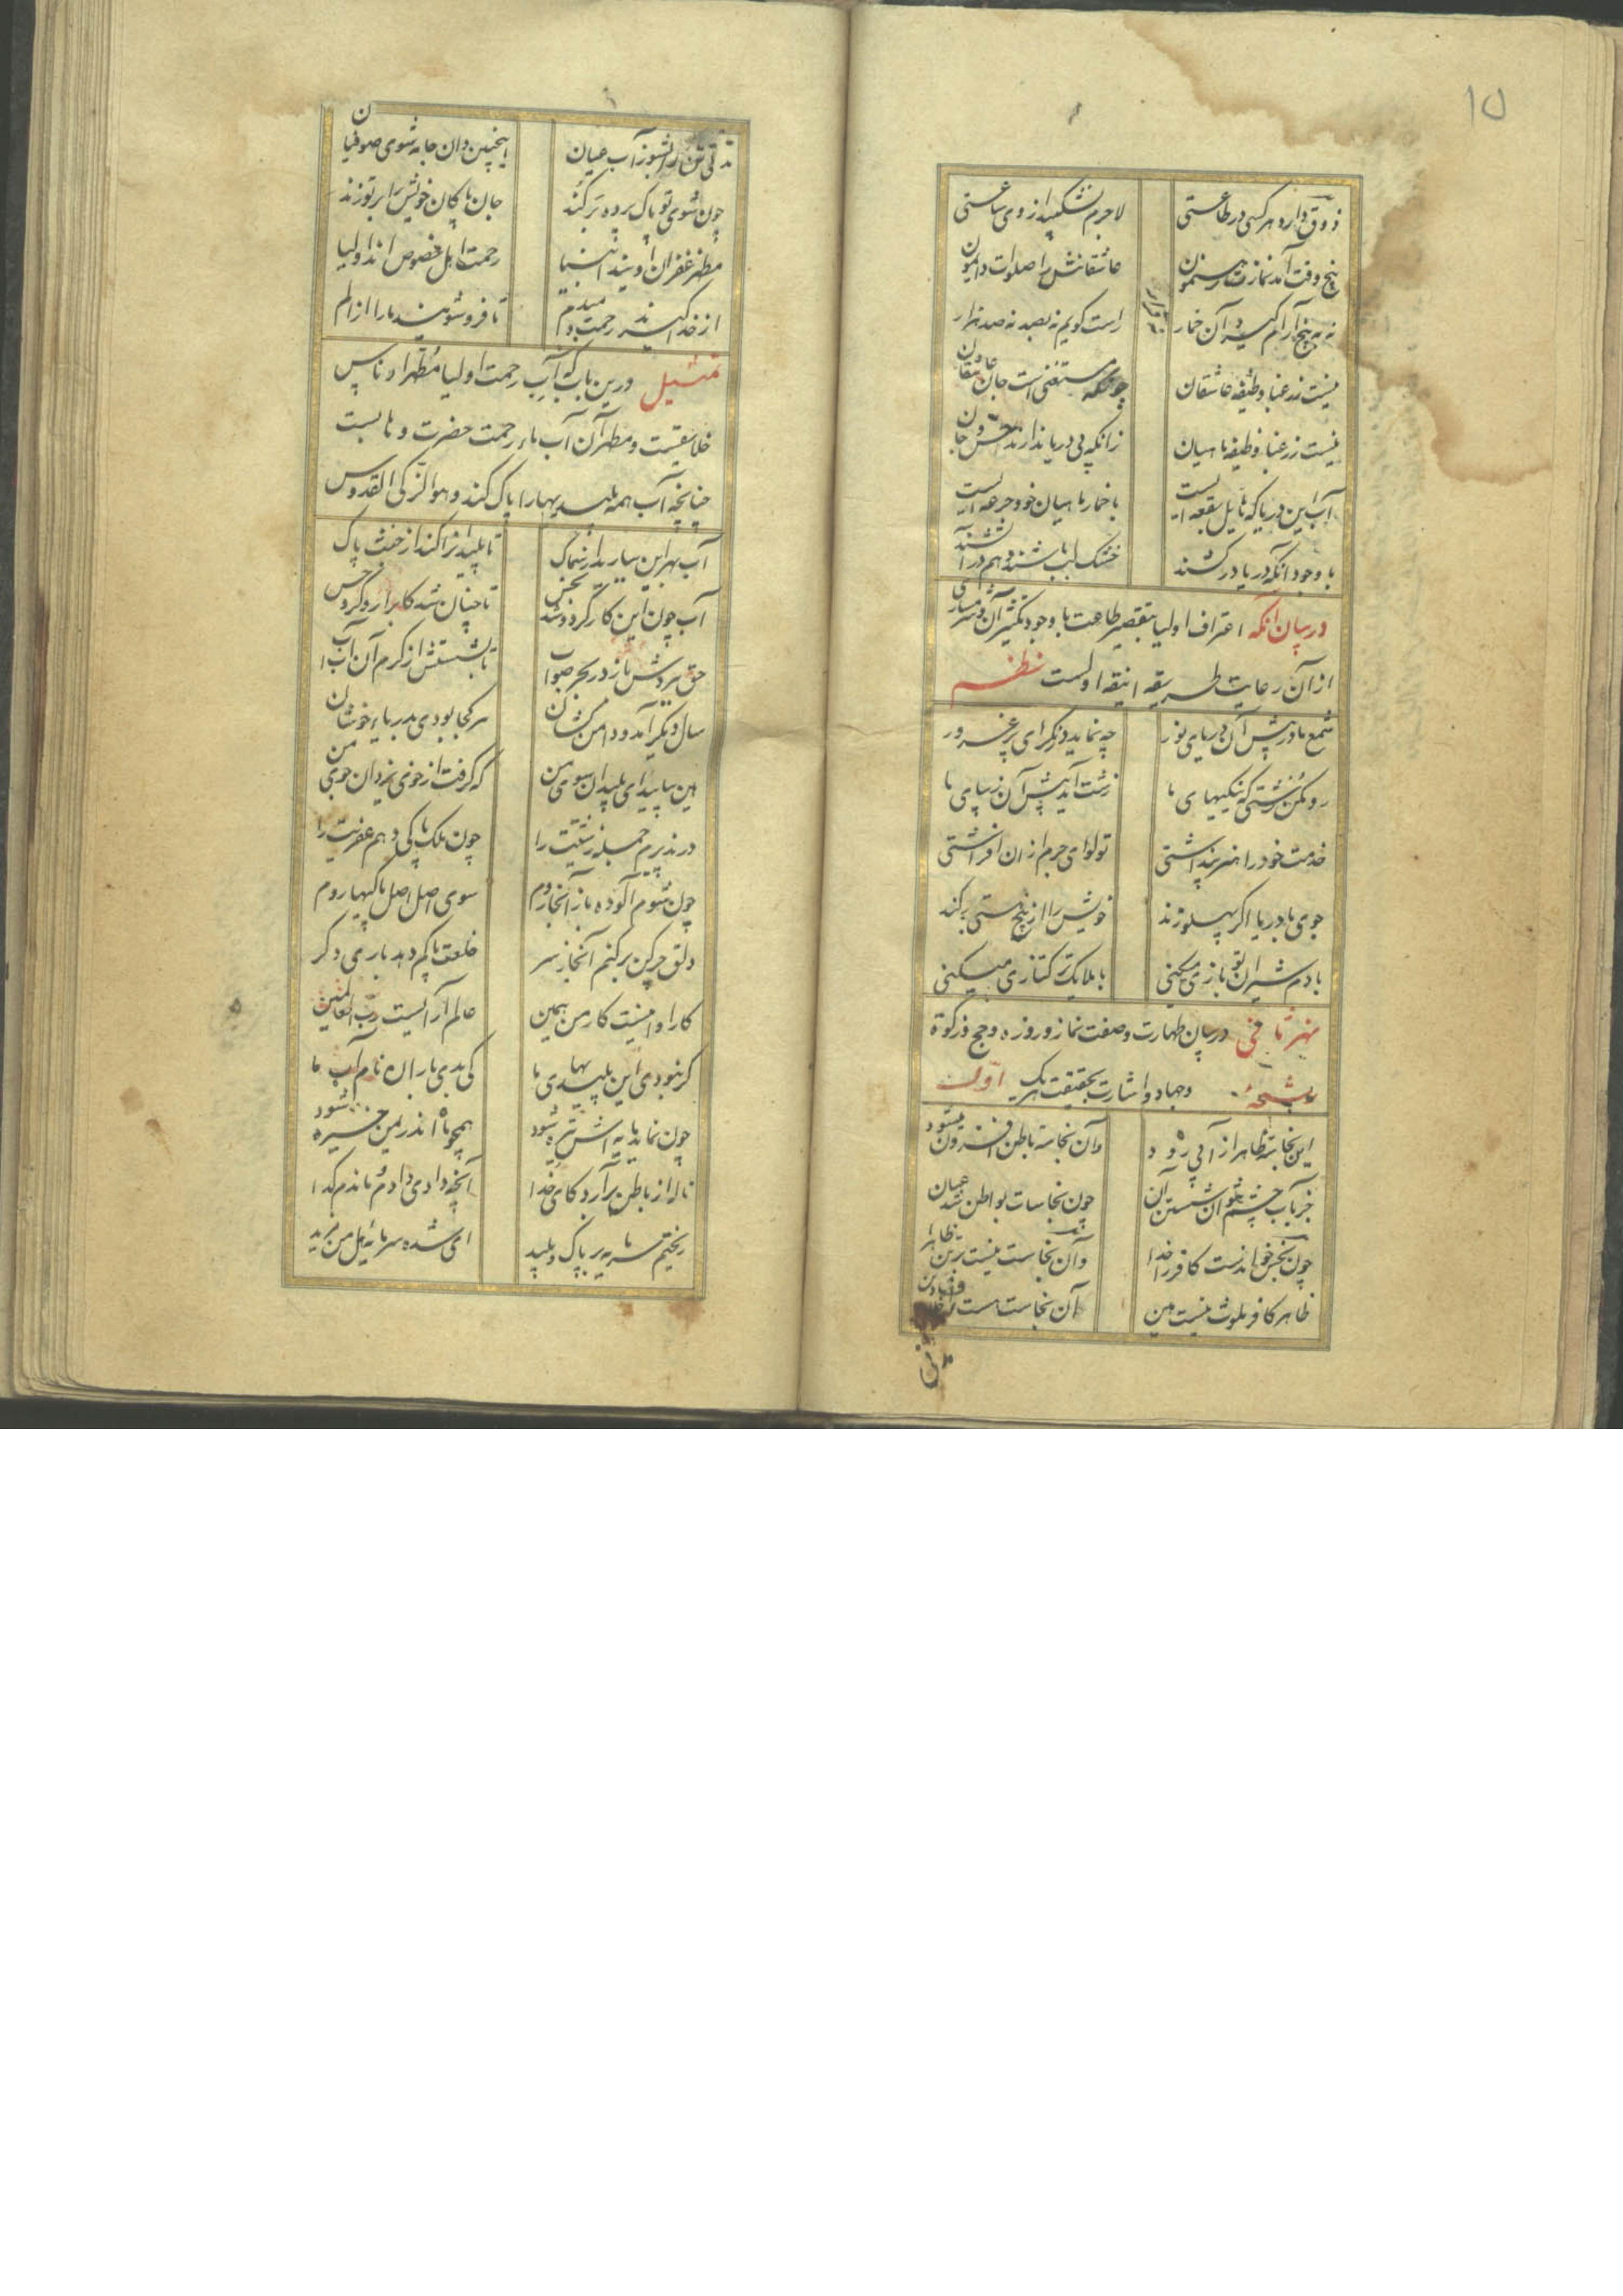 ۱۵
ذوق دارد هر کسی در طاعتی لاجرم نشکیبد از وی ساعتی
پنج وقت آمد نماز رهنمون عاشقانش را صلوات دائمون
نه به پنج آرام گیرد آن خمار راست گویم نه بصد نه صد هزار
نیست زر غبا وظیفه عاشقان سخت مستسقی است جان عاشقان
نیست زر غبا وظیفه ماهیان زانکه بی دریا ندارند انس جان
آب این دریا که هایل بقعه ایست با خمار ماهیان خود جرعه ایست
با وجود آنکه دریا درکشند خشک لب باشند و هم در آتشند
در بیان آنکه اعتراف اولیا بتقصیر طاعت با وجود تکثیر آن و شرمساری
از آن رعایت طریقه انیقه اولست نظم
شمع ما در پیش آن دریای نور چه نماید درنگر ای پرغرور
رو مکن زشتی که نیکیهای ما زشت آید پیش آن زیبای ما
خدمت خود را هنر پنداشتی تو لوای جرم از آن افراشتی
جوی با دریا اگر پهلو زند خویش را از بیخ هستی برکند
با دم شیران تو بازی میکنی با ملایک ترکتازی میکنی
نهر ثانی در بیان طهارت و صفت نماز و روزه و حج و زکوة
و جهاد و اشارت بحقیقت هر یک رشحهٔ اول
این نجاسه ظاهر از آبی رود وآن نجاسه باطن افزون میشود
جز بآب چشم نتوان شستن آن چون نجاسات بواطن شد عیان
چون نجس خواندست کافر را خدا وآن نجاست نیست بر ظاهر ورا
ظاهر کافر ملوث نیست زین آن نجاست هست در
تن را بشو ز آب عیان اینچنین دان جامه شوی صوفیان
چون شوی تو پاک پرده برکند جان پاکان خویش را بر تو زند
مظهر غفران اویند انبیا رحمت اهل خصوص اند اولیا
از خدا گیرند رحمت دمبدم تا فرو شویند ما را از الم
تمثیل درین باب که آب رحمت اولیا مطهر ادناس
خلایقست و مطهر آن آب ماء رحمت حضرت وهابست
چنانچه آب همه پلیدیها را پاک کند و هو ازکی القدوس
آب بهر این ببارید از سماک تا پلیدانرا کند از خبث پاک
آب چون این کار کرد و شد نجس تا چنان شد کآب را رد کرد حس
حق ببردش باز در بحر صواب تا بشستش از کرم آن آب آب
سال دیگر آمد و دامن کشان هر کجا بودی بدریای خوشان
هین بیایید ای پلیدان سوی من که گرفت از خوی یزدان خوی من
درپذیرم جمله زشتیت را چون ملک پاکی دهم عفریت را
چون شوم آلوده باز آنجا روم سوی اصل اصل پاکیها روم
دلق چرکین برکنم آنجا ز سر خلعت پاکم دهد باری دگر
کار او اینست کار من همین عالم آرائیست رب العالمین
گر نبودی این پلیدیهای ما کی بدی باران نام آب ما
چون نماید مایه اش تیره شود همچو ما اندر زمین خیره شود
ناله از باطن برآرد کای خدا آنچه دادی دادم و ماندم گدا
ریختم سرمایه بر پاک و پلید ای شه سرمایه ده هل من مزید